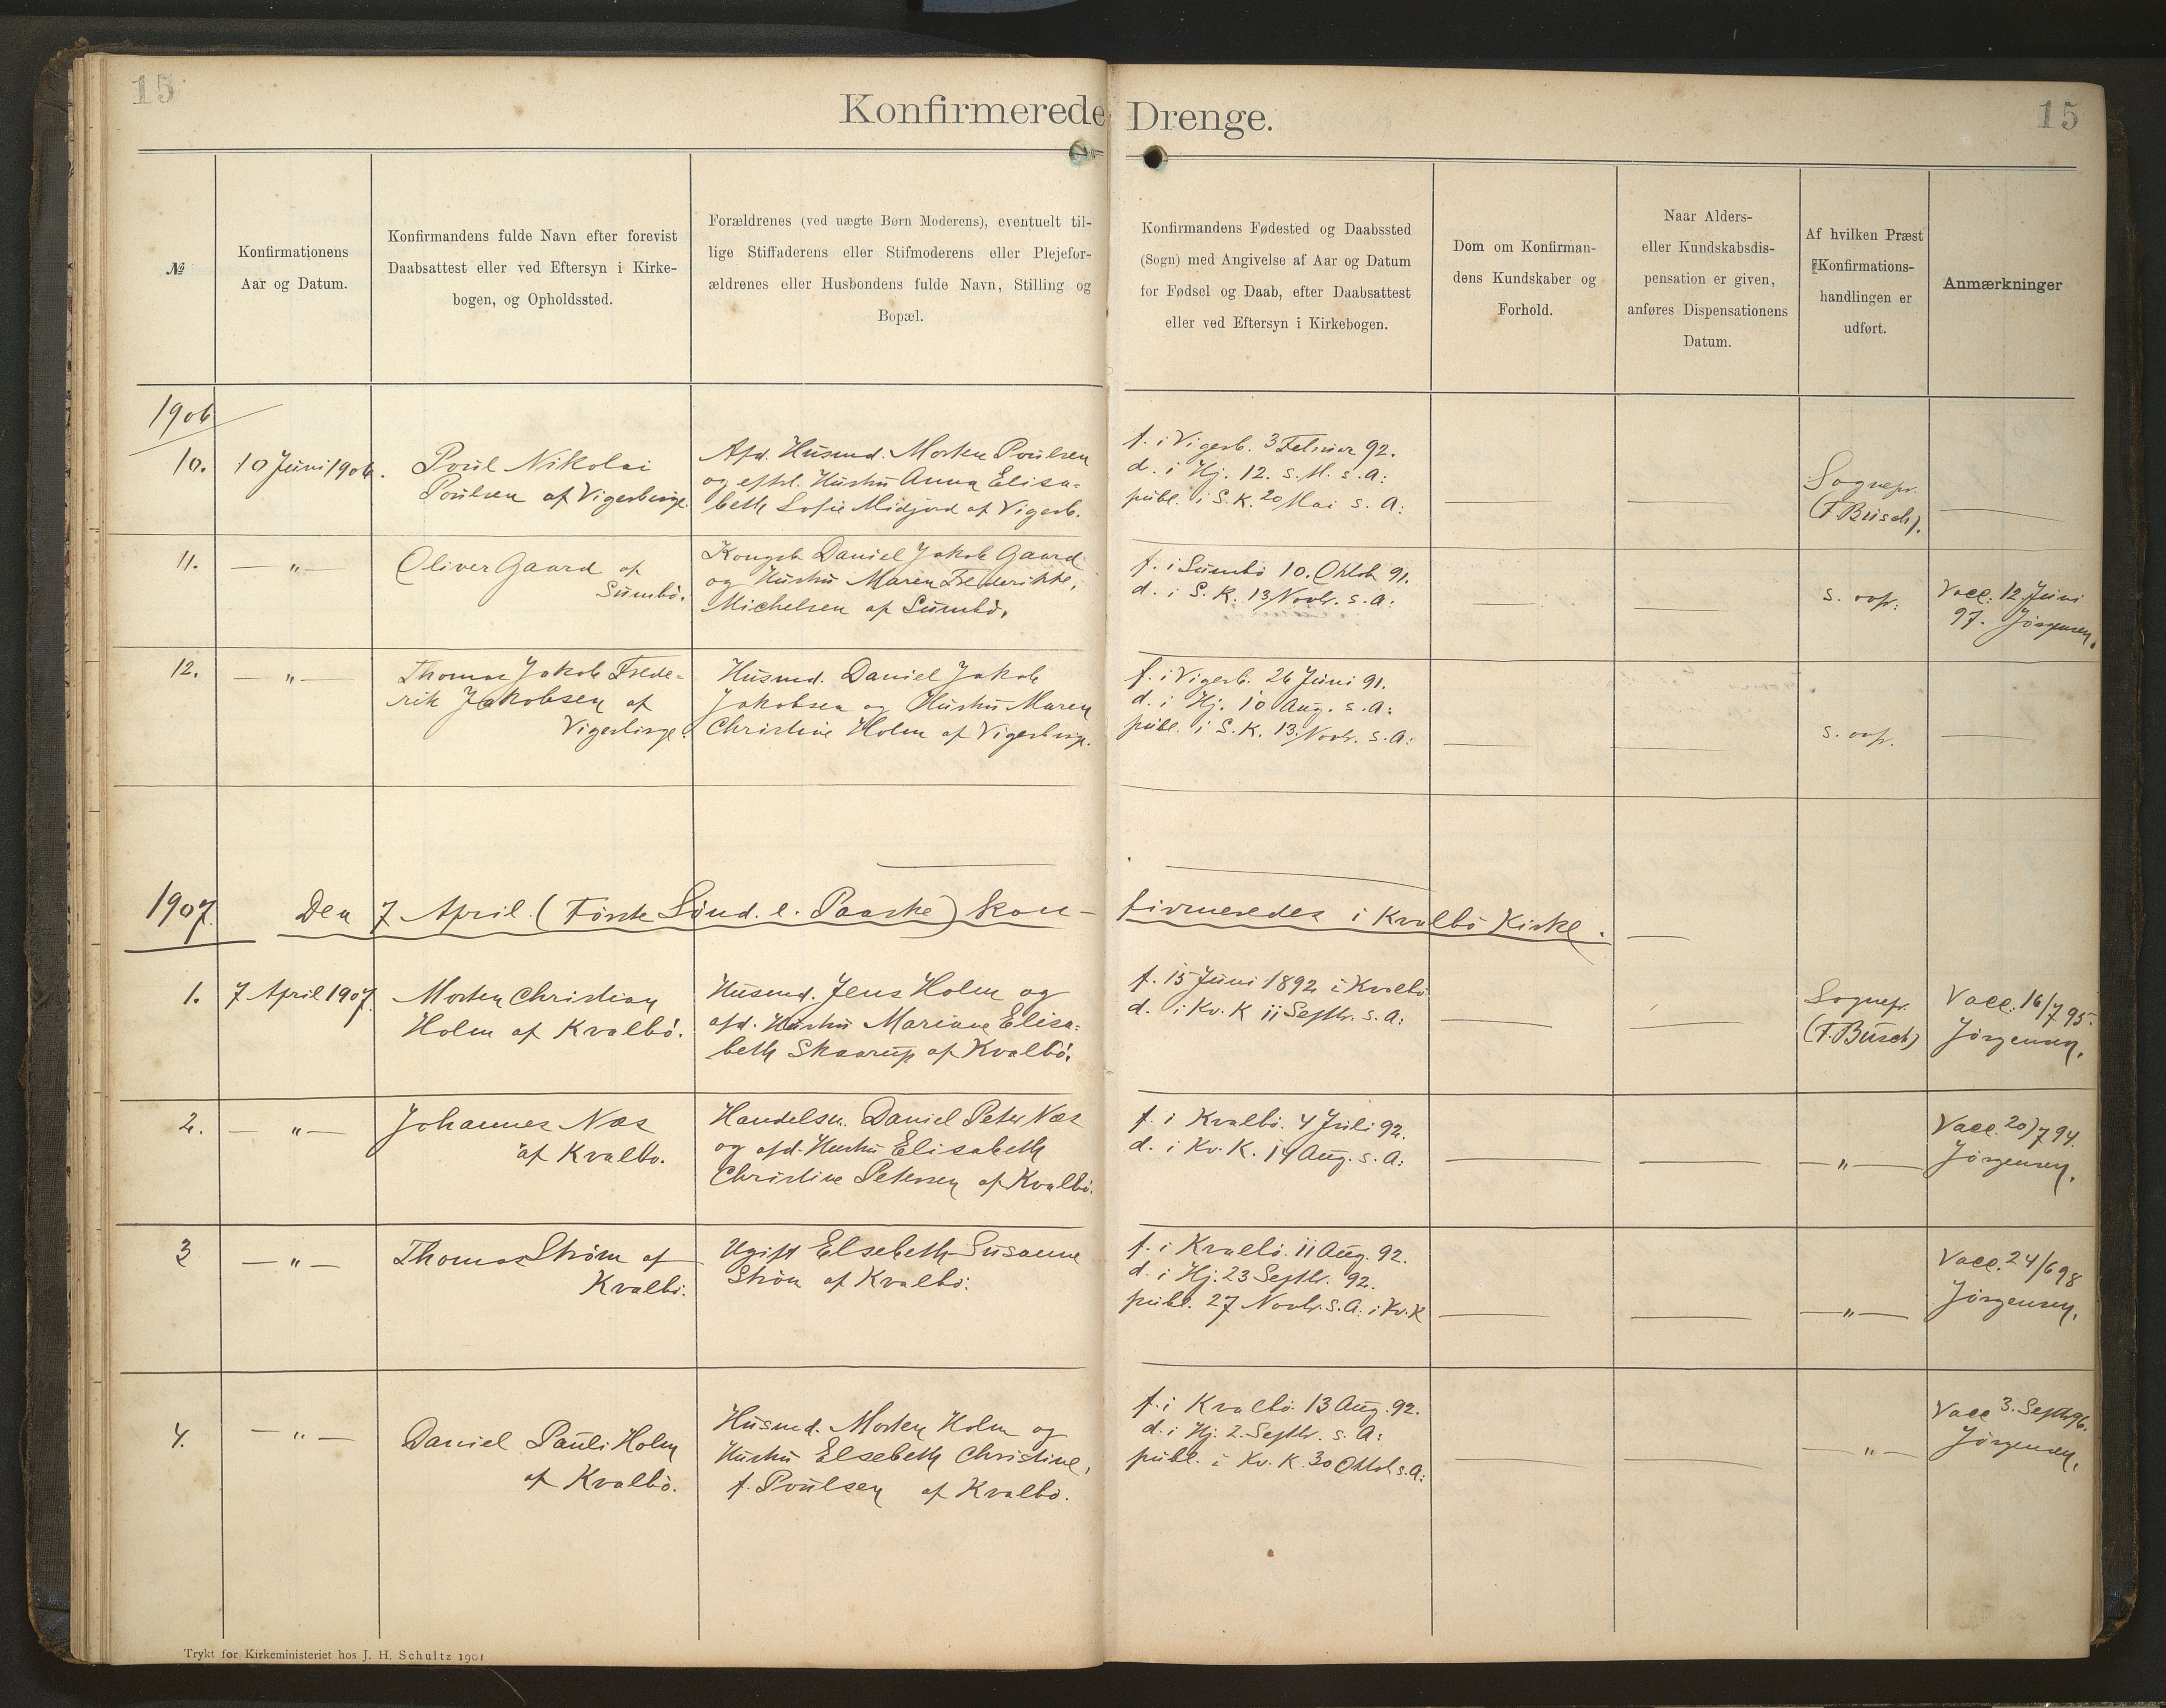 15
Konfirmerede Drenge.
15
№
Konfirmationens
Aar og Datum.
Konfirmandens fulde Navn efter forevist
Daabsattest eller ved Eftersyn i Kirke-
bogen, og Opholdssted.
Forældrenes (ved uægte Børn Moderens), eventuelt til-
lige Stiffaderens eller Stifmoderens eller Plejefor-
ældrenes eller Husbondens fulde Navn, Stilling og
Bopæl.
Konfirmandens Fødested og Daabssted
(Sogn) med Angivelse af Aar og Datum
for Fødsel og Daab, efter Daabsattest
eller ved Eftersyn i Kirkebogen.
Dom om Konfirman-
dens Kundskaber og
Forhold.
Naar Alders-
eller Kundskabsdis-
pensation er given,
anføres Dispensationens
Datum.
Af hvilken Præst
Konfirmations-
handlingen er
udført.
Anmærkninger
1906
10.
10 Juni 1906.
Poul Nikolai
Poulsen af Vigerbirge.
Afd. Husmd. Morten Poulsen
og eftrl. Hustru Anna Elisa-
beth Sofie Midjord af Vigerb.
f. i Vigerb. 3 Februar 92.
d. i Hj. 12. s. M. s. A:
publ. i S. K. 20 Mai s. A:
Sognepr.
(F. Busch).
11.
— " —
Oliver Gaard af
Sumbö.
Kongsb. Daniel Jakob Gaard
og Hustru Maren Frederikke,
Michelsen af Sumbö.
f. i Sumbö 10. Oktob 91.
d. i S. K. 13 Novbr. s. A:
s. ovf:
Vacc: 12 Juni
97. Jörgensen.
12.
— " —
Thomas Jakob Frede-
rik Jakobsen af
Vigerbirge.
Husmd. Daniel Jakob
Jakobsen og Hustru Maren
Christine Holm af Vigerbirge.
f. i Vigerb. 26 Juni 91.
d. i Hj. 10 Aug. s. A:
publ. i S. K. 13. Novbr. s. A:
s. ovf.
1907.
Den 7 April (Förste Sönd. e. Paaske) kon-
firmeredes i Kvalbö Kirke.
1.
7 April 1907.
Morten Christian
Holm af Kvalbö.
Husmd. Jens Holm og
afd. Hustru Mariane Elisa-
beth Skaarup af Kvalbö.
f. 15 Juni 1892 i Kvalbö
d. i Kv. K 11 Septbr. s. A:
Sognepr.
(F. Busch)
Vacc. 16/7 95.
Jörgensen.
2.
— " —
Johannes Næs
af Kvalbö.
Handelsm. Daniel Peter Næs
og afd. Hustru Elisabeth
Christine Petersen af Kvalbö.
f. i Kvalbö. 4 Juli 92.
d. i Kv. K. 14 Aug. s. A:
— " —
Vacc. 20/7 94.
Jörgensen.
3
— " —
Thomas Ström af
Kvalbö.
Ugift Elsebeth Susanne
Ström af Kvalbö.
f. i Kvalbö. 11 Aug. 92.
d. i Hj. 23 Septbr. 92.
publ. 27 Novbr. s. A. i Kv. K
— " —
Vacc. 24/6 98
Jörgensen.
4.
— " —
Daniel Pauli Holm
af Kvalbö.
Husmd. Morten Holm og
Hustru Elsebeth Christine,
f. Poulsen af Kvalbö.
f. i Kvalbö 13 Aug. 92.
d. i Hj. 2. Septbr. s. A:
publ. i Kv. K. 30 Oktob s. A:
— " —
Vacc 3. Septbr 96.
Jörgensen.
Trykt for Kirkeministeriet hos J. H. Schultz 1901